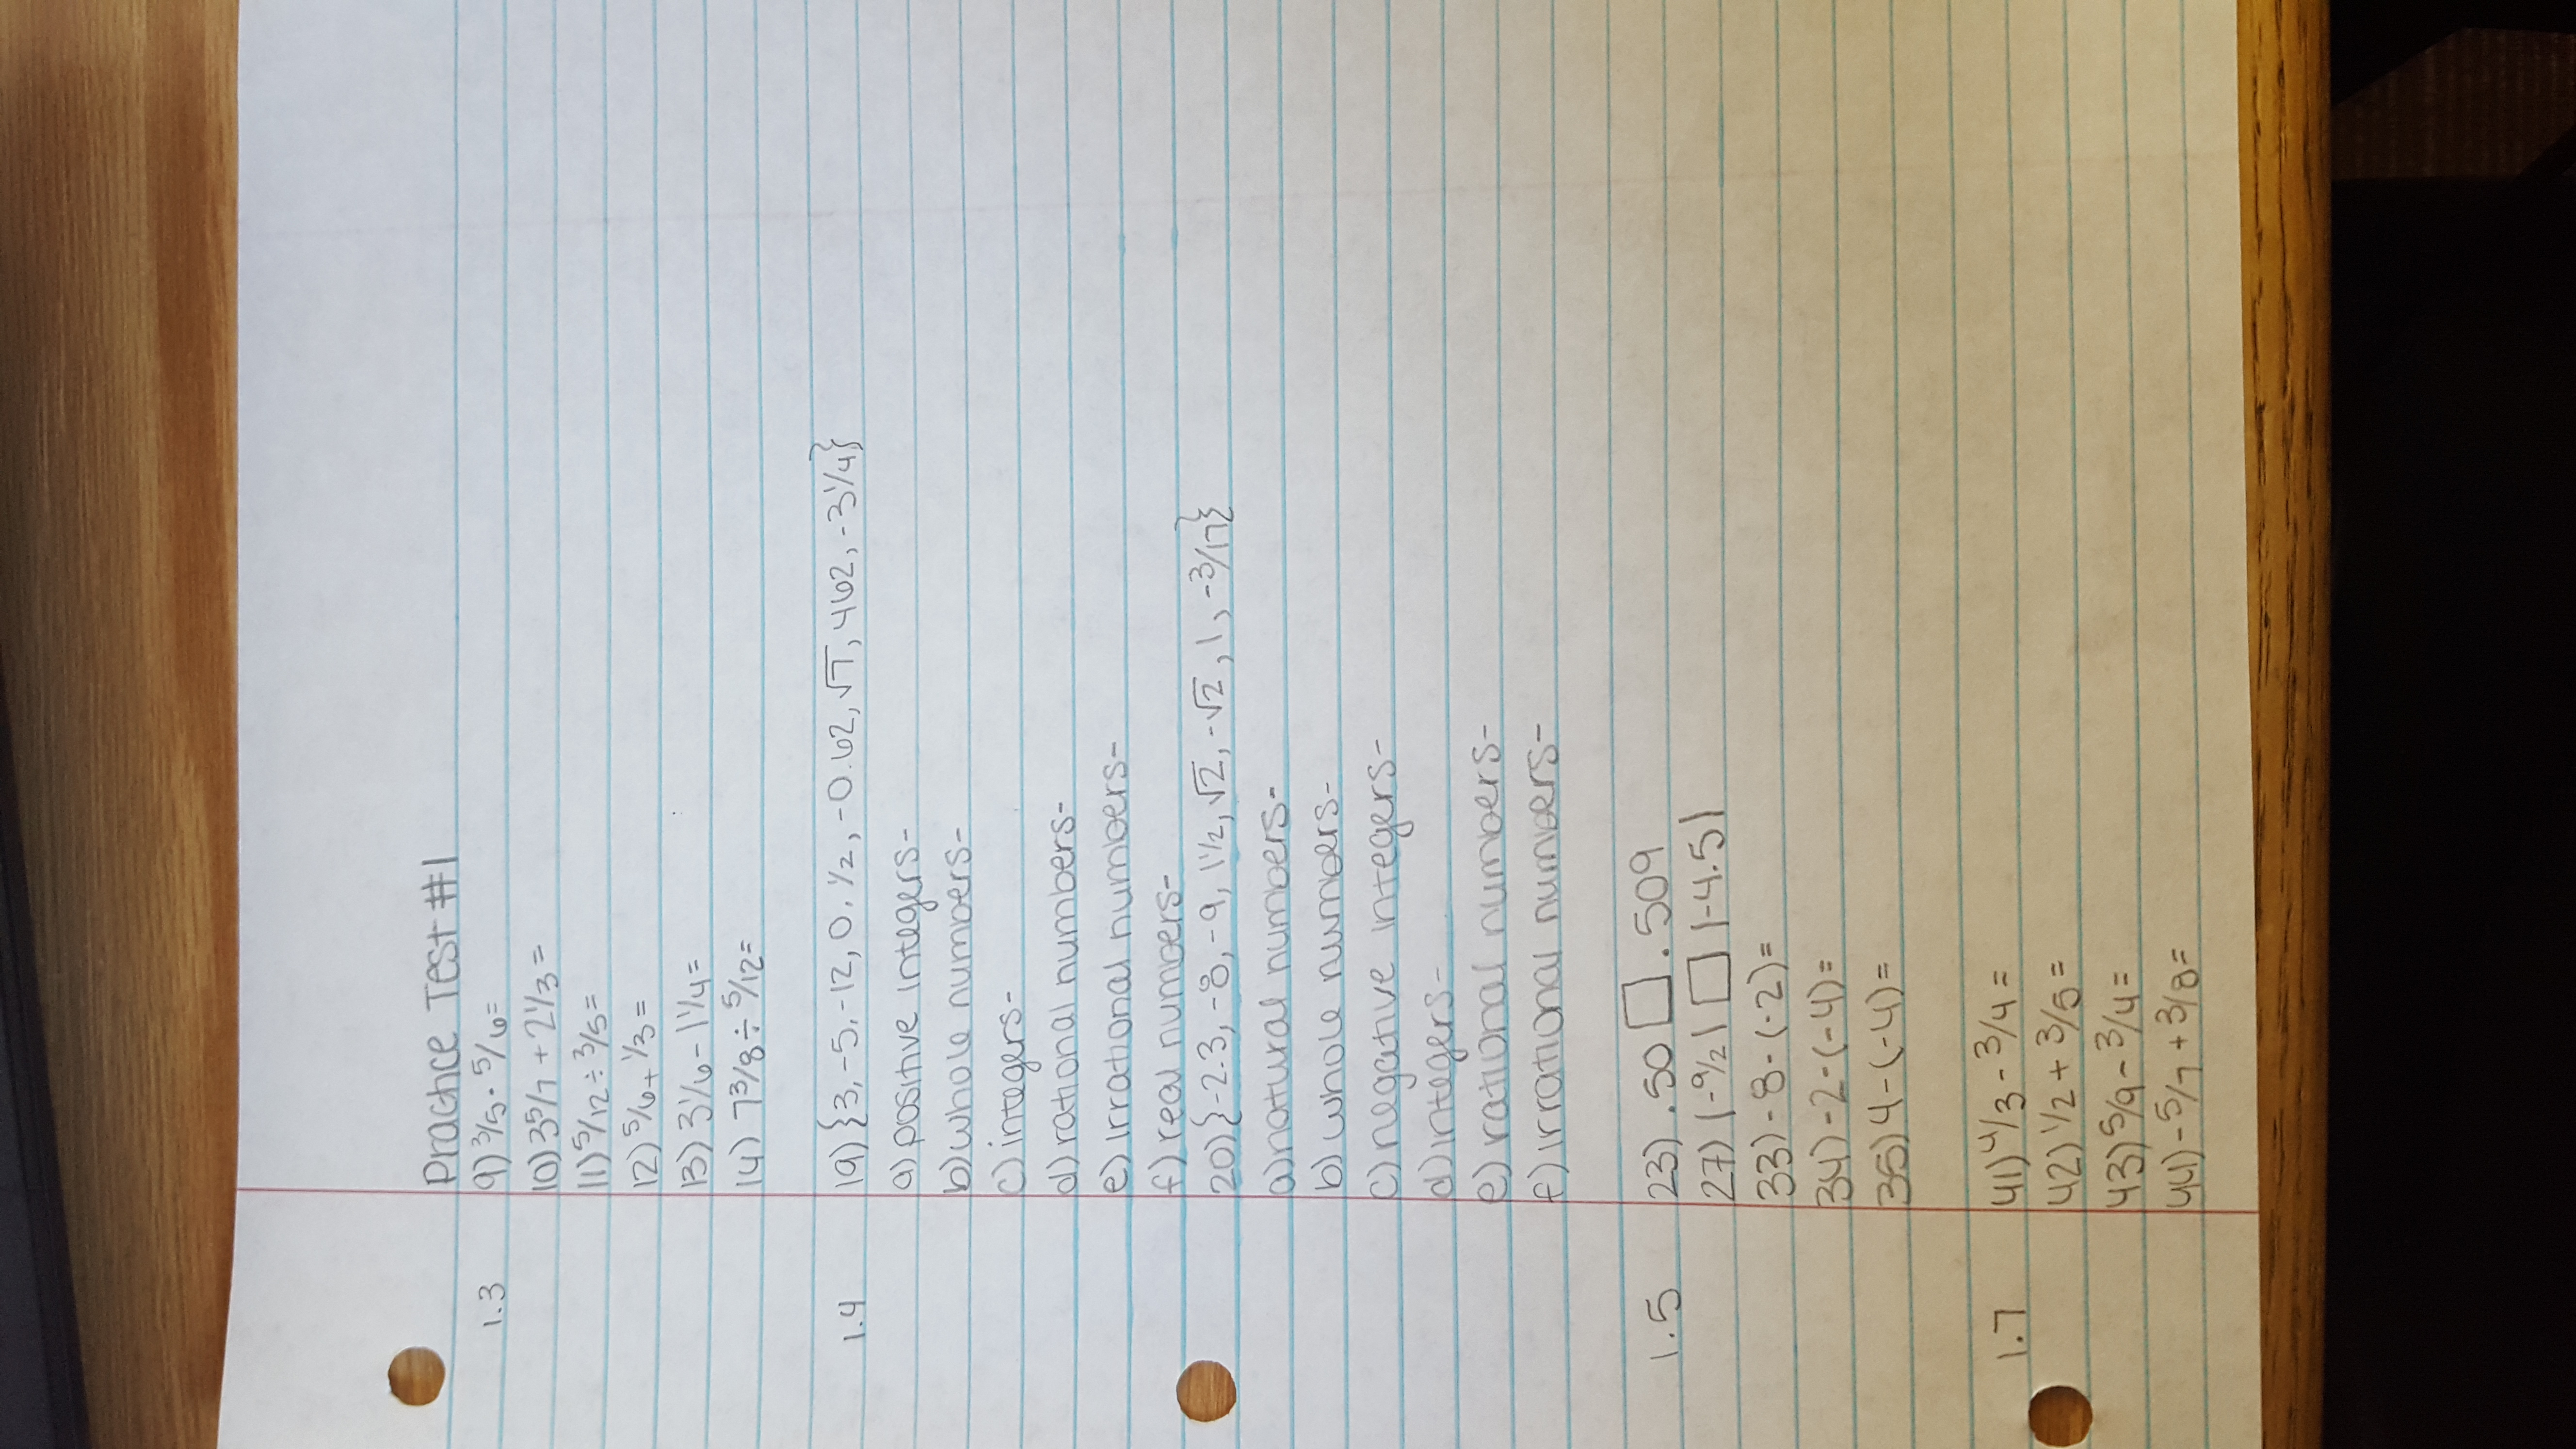 Practice Test #1
1.3 9) 3/5 · 5/6=
10) 3 5/7 + 2 1/3 =
11) 5/12 ÷ 3/5 =
12) 5/6 + 1/3 =
13) 3 1/6 - 1 1/4 =
14) 7 3/8 ÷ 5/12 =
1.4 19) {3, -5, -12, 0, 1/2, -0.62, √7, 462, -3 1/4}
a) positive integers-
b) whole numbers-
c) integers-
d) rational numbers-
e) irrational numbers-
f) real numbers-
20) {-2.3, -8, -9, 1 1/2, √2, -√2, 1, -3/17}
a) natural numbers-
b) whole numbers-
c) negative integers-
d) integers-
e) rational numbers-
f) irrational numbers-
1.5 23) .50 □ .509
27) |-9/2| □ |-4.5|
33) -8 - (-2) =
34) -2 - (-4) =
35) 4 - (-4) =
1.7 41) 4/3 - 3/4 =
42) 1/2 + 3/5 =
43) 5/9 - 3/4 =
44) - 5/7 + 3/8 =